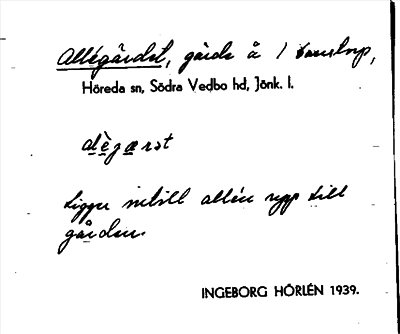 Allégärdet, gärde å 1
Höreda sn, Södra Vedbo hd, Jönk. l.
Ligger intill allén upp till
gården.
INGEBORG HÖRLÉN 1939.